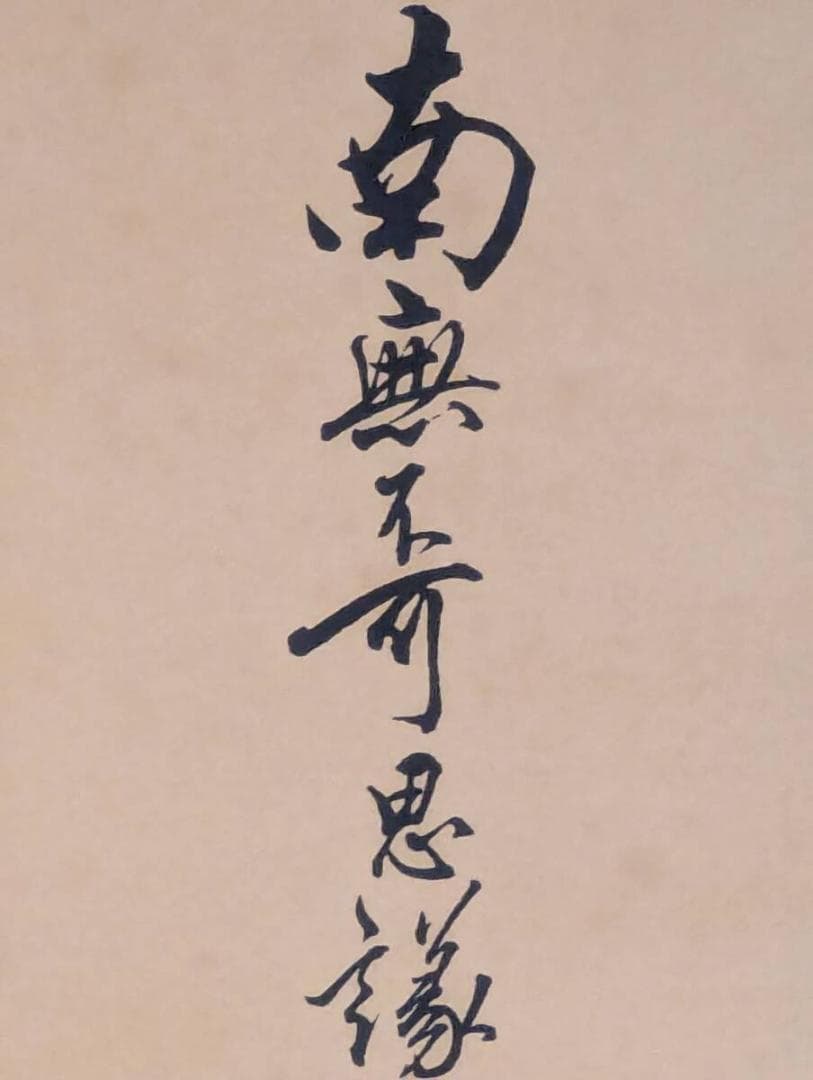 南無不可思議